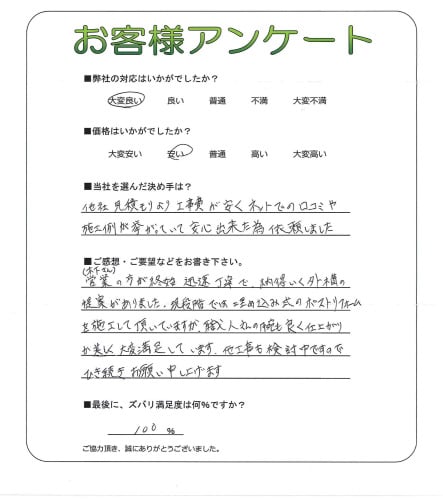 お客様アンケート
■弊社の対応はいかがでしたか?
大変良い 良い 普通 不満 大変不満
■価格はいかがでしたか?
大変安い 安い 普通 高い 大変高い
■当社を選んだ決め手は?
他社見積もりより工事費が安くネットでの口コミや
施工例が挙がっていて安心出来た為依頼しました
■ご感想・ご要望などをお書き下さい。
(木下さん)
営業の方が終始迅速丁寧で、納得いく外構の
提案がありました。現段階では埋め込み式のポストリフォーム
を施工して頂いていますが、職人さんの腕も良く仕上がり
が美しく大変満足しています。他工事も検討中ですので
ひき続きお願い申し上げます
■最後に、ズバリ満足度は何%ですか?
100 %
ご協力頂き、誠にありがとうございました。